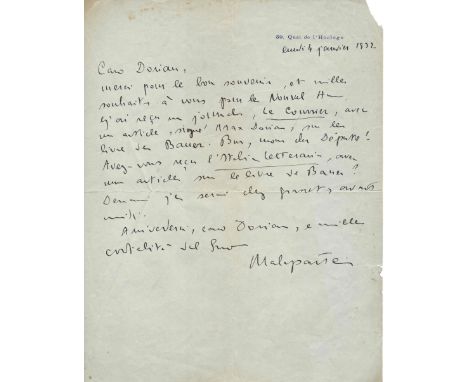 39, Quai de l'Horloge
lundi 4 janvier 1932
Caro Dorian,
merci pour le bon souvenir, et mille
souhaits à vous pour le Nouvel An
j'ai reçu un journal, Le Courrier, avec
un article, signé Max Dorian, sur les
livre de Bauer. mons du Député!
Avez-vous reçu l'Italia Letteraria, avec
un article sur le livre de Bauer?
Demain j'en serai chez Grasset, avant
midi.
Arrivederci, caro Dorian, e mille
cordialità del Suo
Malaparte